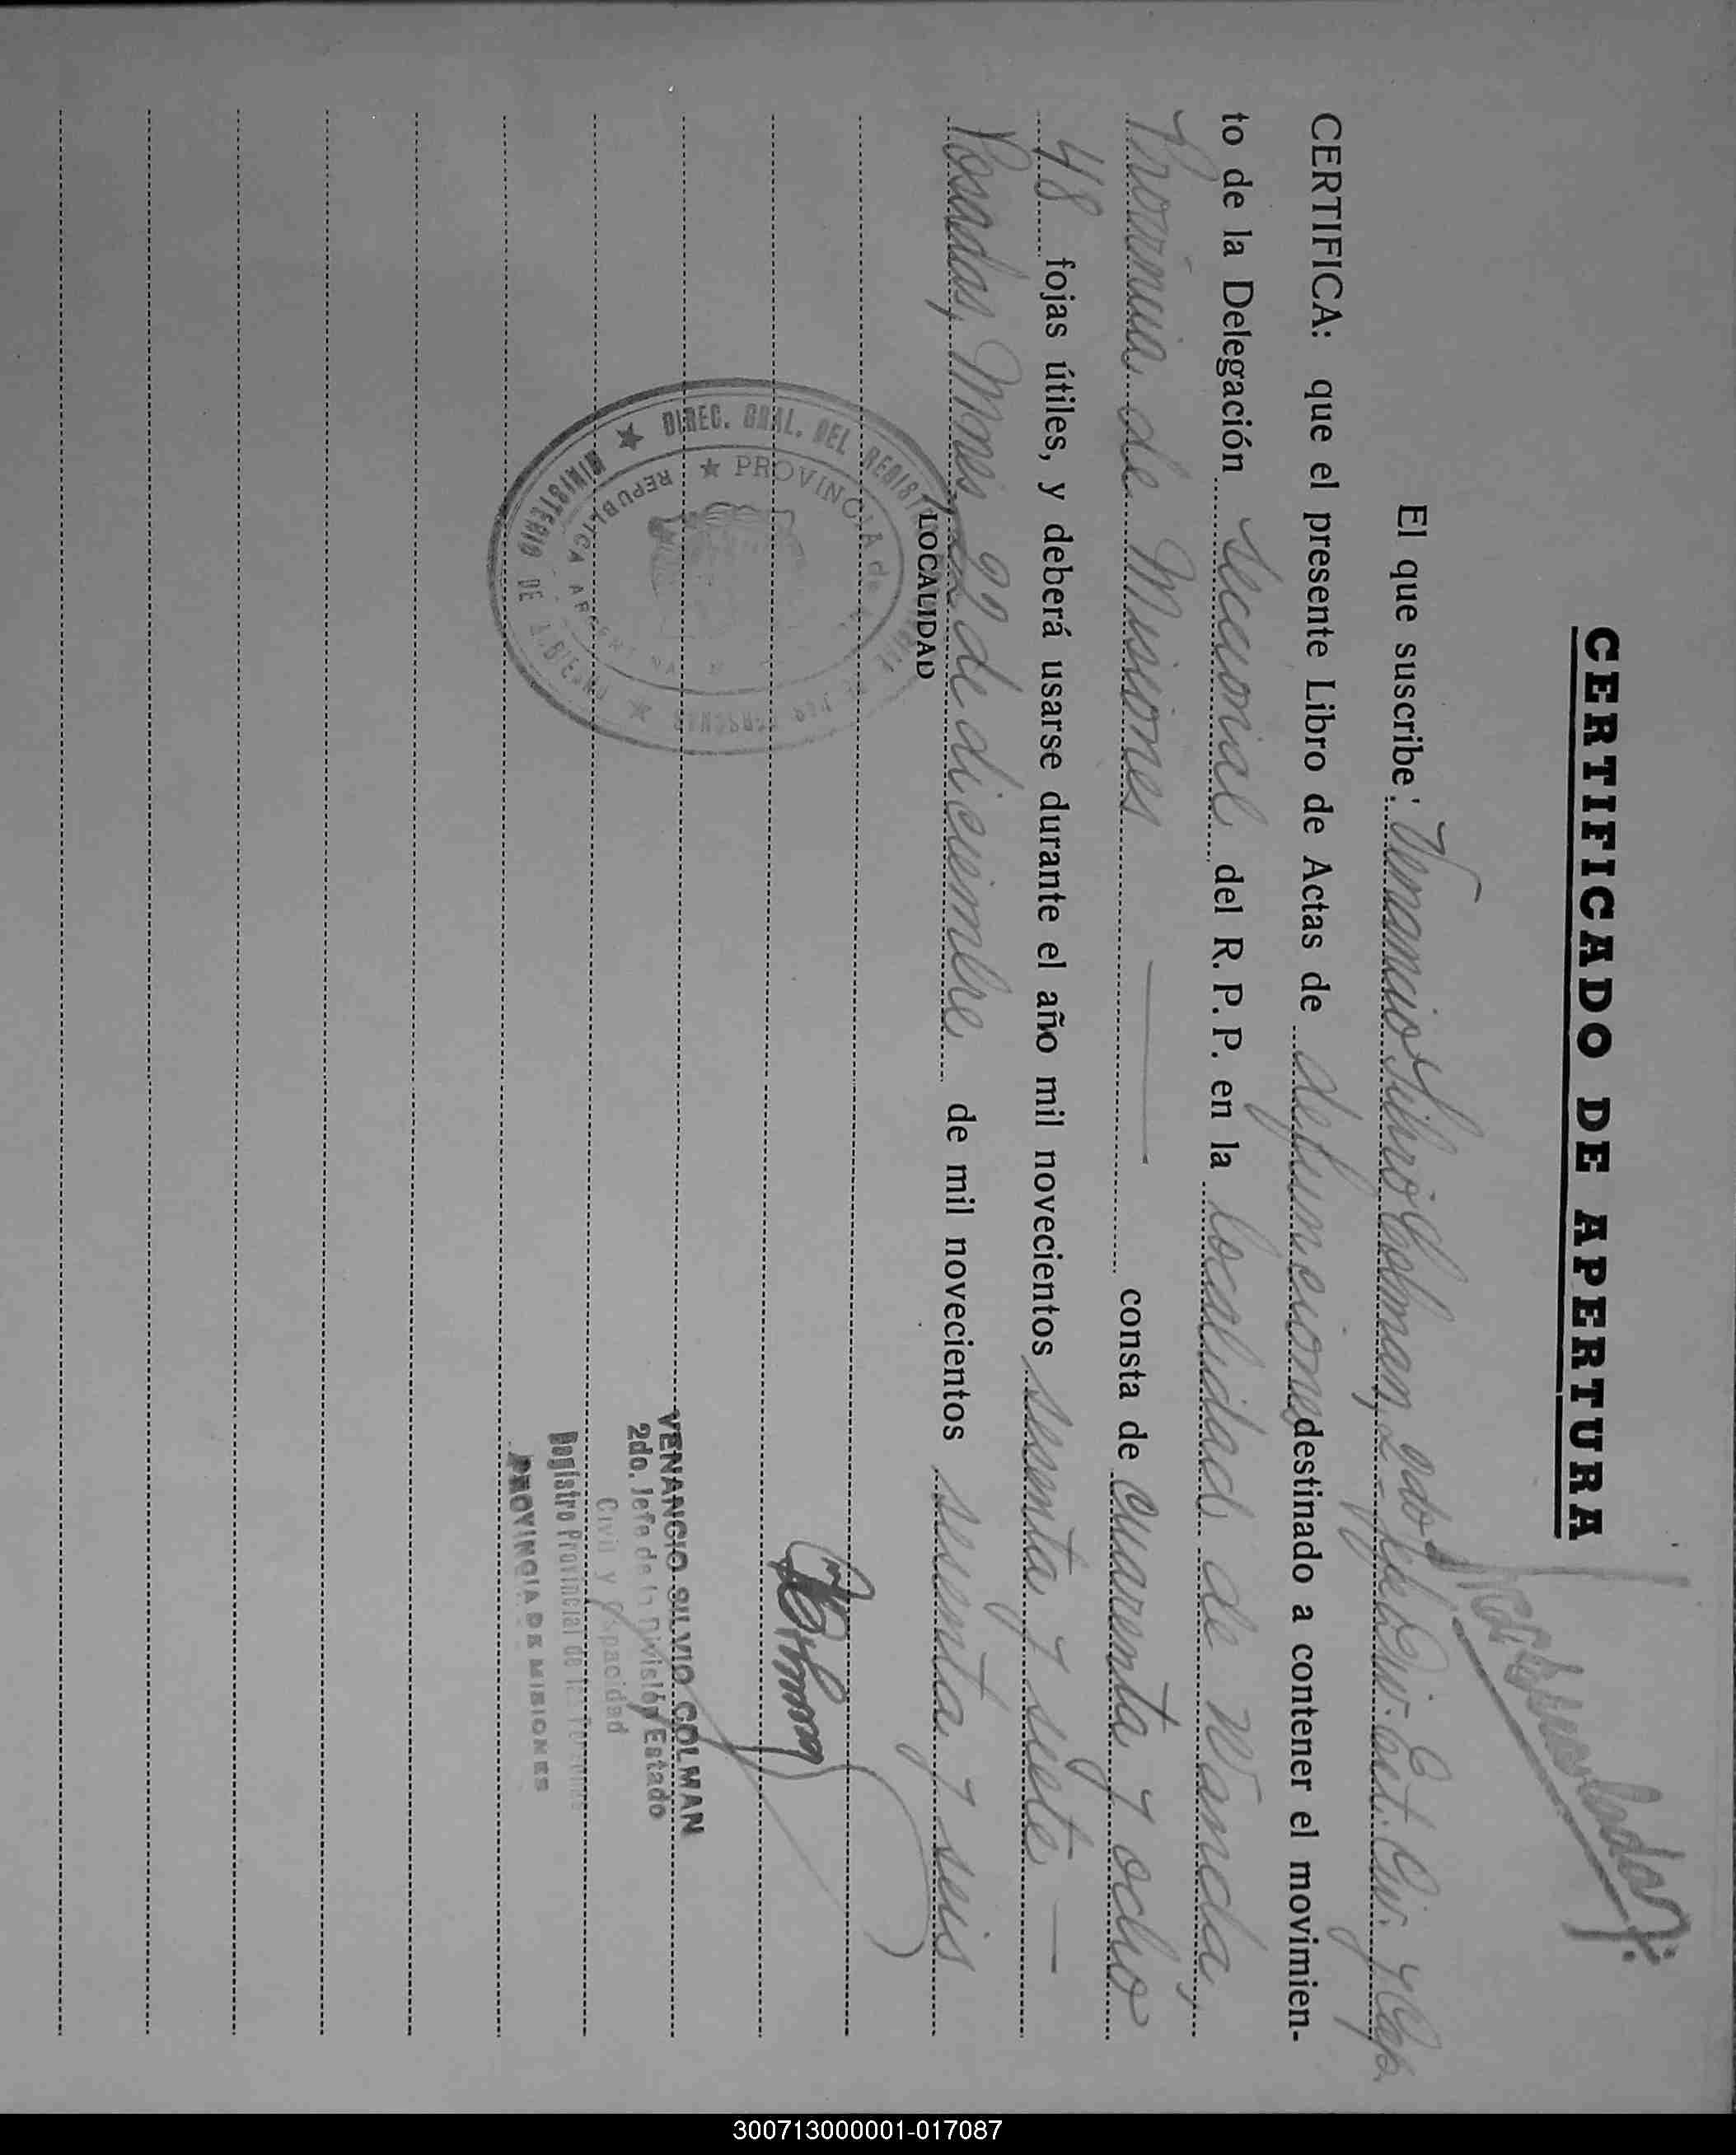 CERTIFICADO DE APERTURA
El que suscribe: Venancio Silvio Colman, 2do Jefe Div. Est. Civ. y Cap.
CERTIFICA: que el presente Libro de Actas de defunciones destinado a contener el movimien-
to de la Delegación seccional del R. P. P. en la localidad de Wanda,
Provincia de Misiones consta de cuarenta y ocho
48 fojas útiles, y deberá usarse durante el año mil novecientos sesenta y siete
Posadas, Mnes, 22 de diciembre de mil novecientos sesenta y seis
LOCALIDAD
DIREC. GRAL. DEL REGIST
PROVINCIA de
REPUBLICA ARGENTINA
MINISTERIO DE GOBIERNO
VENANCIO SILVIO COLMAN
2do. Jefe de la División Estado
Civil y Capacidad
Registro Provincial de las Personas
PROVINCIA DE MISIONES
300713000001-017087